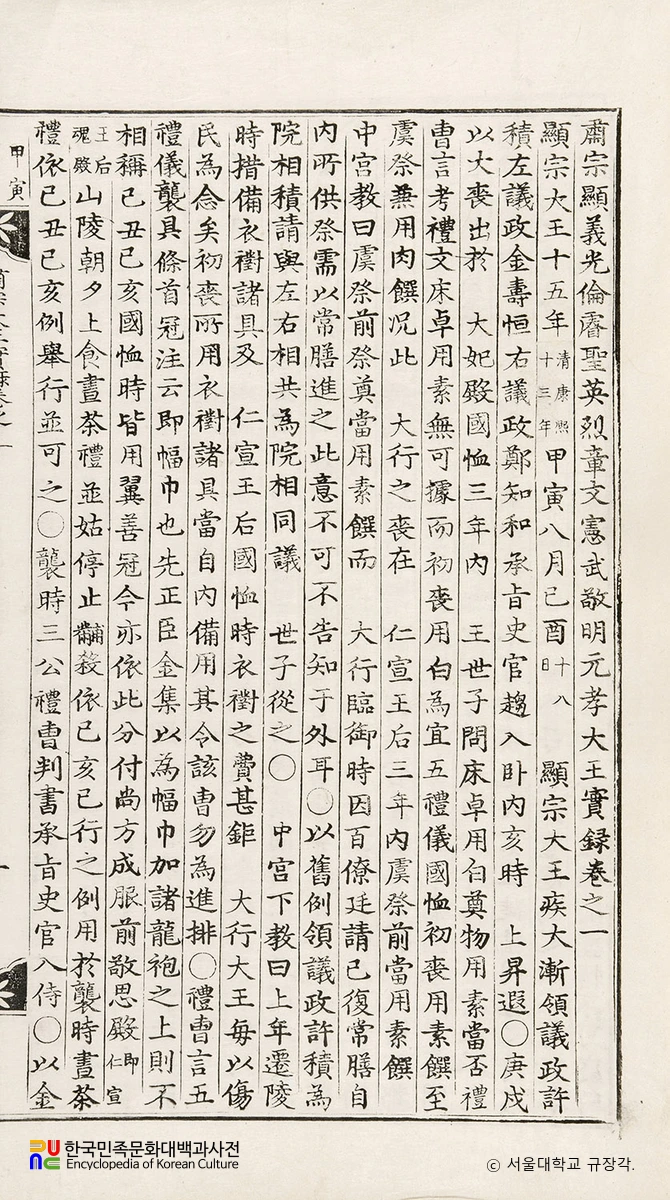 肅宗顯義光倫睿聖英烈章文憲武敬明元孝大王實錄卷之一
顯宗大王十五年清康熙十三年甲寅八月己酉十八日 顯宗大王疾大漸領議政許
積左議政金壽恒右議政鄭知和承旨史官趨入臥內亥時 上昇遐〇庚戌
以大喪出於 大妃殿國恤三年內 王世子問床卓用白奠物用素當否禮
曹言考禮文床卓用素無可據而初喪用白爲宜五禮儀國恤初喪用素饌至
虞祭兼用肉饌况此 大行之喪在 仁宣王后三年內虞祭前當用素饌
中宮教曰虞祭前祭奠當用素饌而 大行臨御時因百僚廷請已復常膳自
內所供祭需以常膳進之此意不可不告知于外耳〇以舊例領議政許積爲
院相積請與左右相共爲院相同議 世子從之〇 中宮下教曰上年遷陵
時措備衣襨諸具及 仁宣王后國恤時衣襨之費甚鉅 大行大王每以傷
民爲念矣初喪所用衣襨諸具當自內備用其令該曹勿爲進排〇禮曹言五
禮儀襲具條首冠注云即幅巾也先正臣金集以爲幅巾加諸龍袍之上則不
相稱己丑己亥國恤時皆用翼善冠今亦依此分付尙方成服前敬思殿即仁宣
王后魂殿山陵朝夕上食晝茶禮並姑停止黼翣依己亥已行之例用於襲時晝茶
禮依己丑己亥例舉行並可之〇襲時三公禮曹判書承旨史官入侍〇以金
甲寅
한국민족문화대백과사전
Encyclopedia of Korean Culture
ⓒ 서울대학교 규장각.